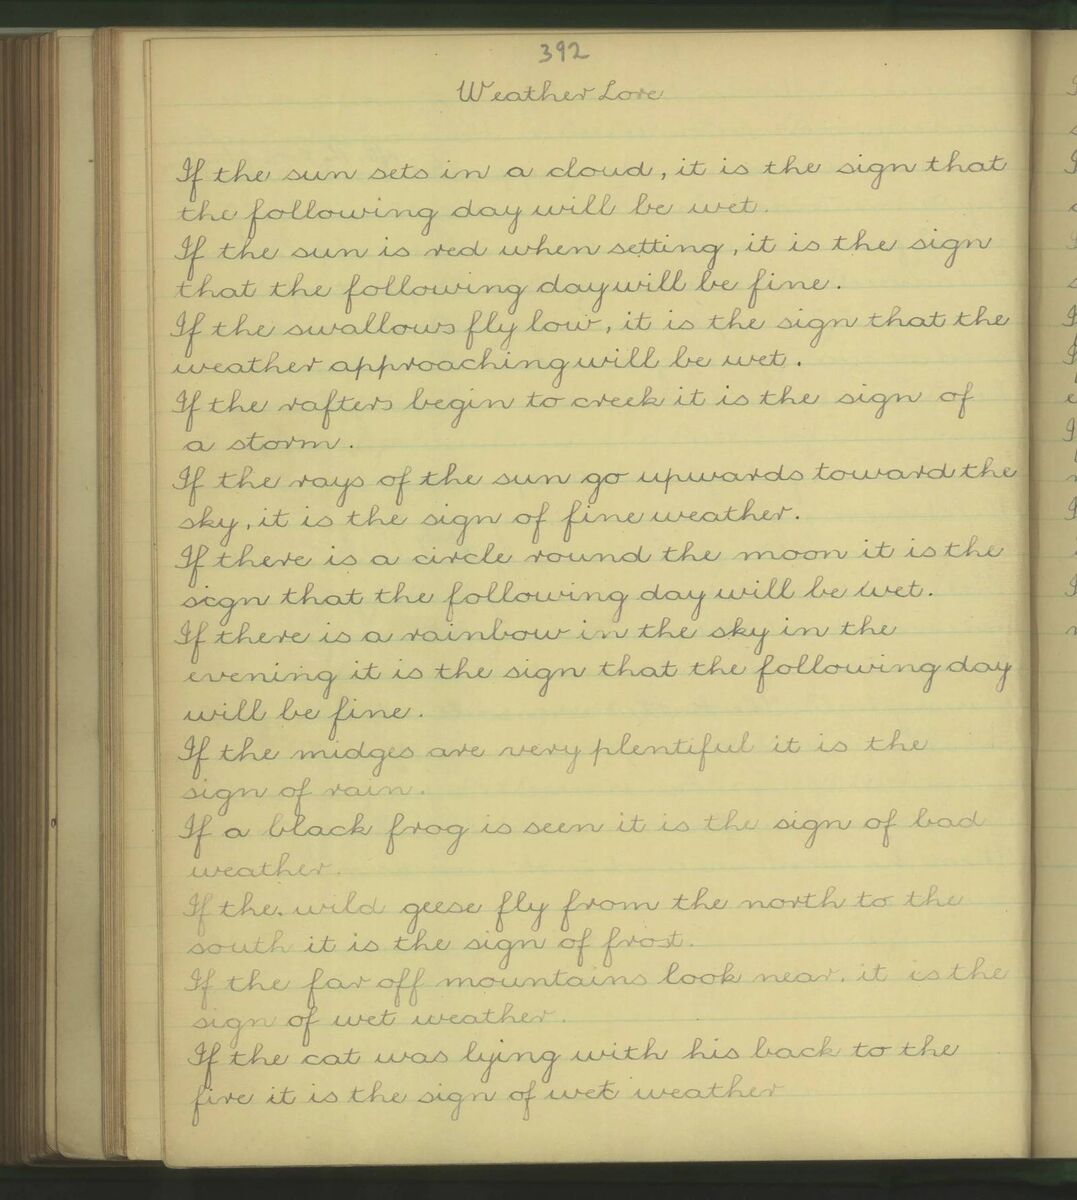 392
Weather Lore
If the sun sets in a cloud, it is the sign that
the following day will be wet.
If the sun is red when setting, it is the sign
that the following day will be fine.
If the swallows fly low, it is the sign that the
weather approaching will be wet.
If the rafters begin to creek it is the sign of
a storm.
If the rays of the sun go upwards toward the
sky, it is the sign of fine weather.
If there is a circle round the moon it is the
sign that the following day will be wet.
If there is a rainbow in the sky in the
evening it is the sign that the following day
will be fine.
If the midges are very plentiful it is the
sign of rain.
If a black frog is seen it is the sign of bad
weather.
If the. wild geese fly from the north to the
south it is the sign of frost.
If the far off mountains look near. it is the
sign of wet weather.
If the cat was lying with his back to the
fire it is the sign of wet weather